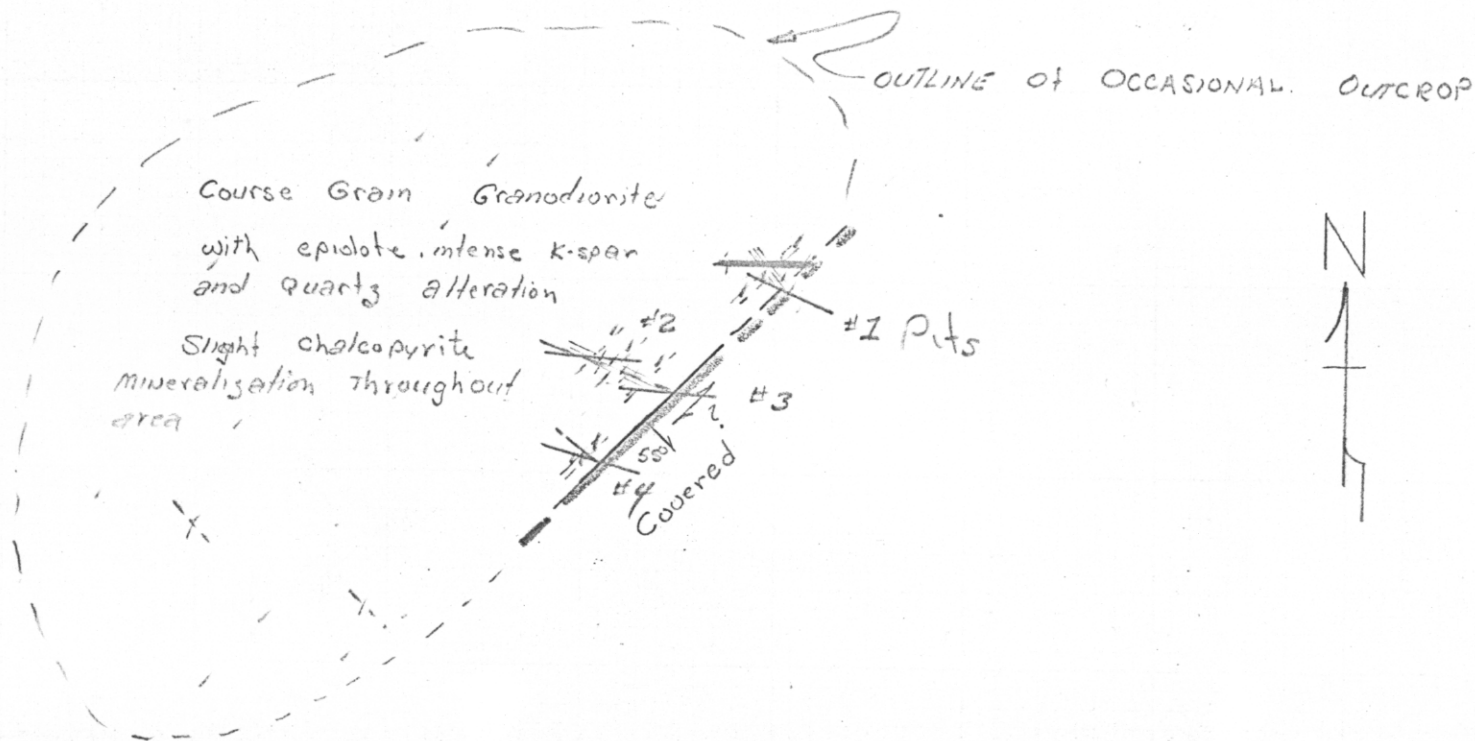 OUTLINE of OCCASIONAL. OUTCROP
Course Grain Granodiorite
with epidote, intense K-spar
and quartz alteration
Slight Chalcopyrite
mineralization Throughout
area
N
#1 Pits
#2
#3
?
#4
Covered